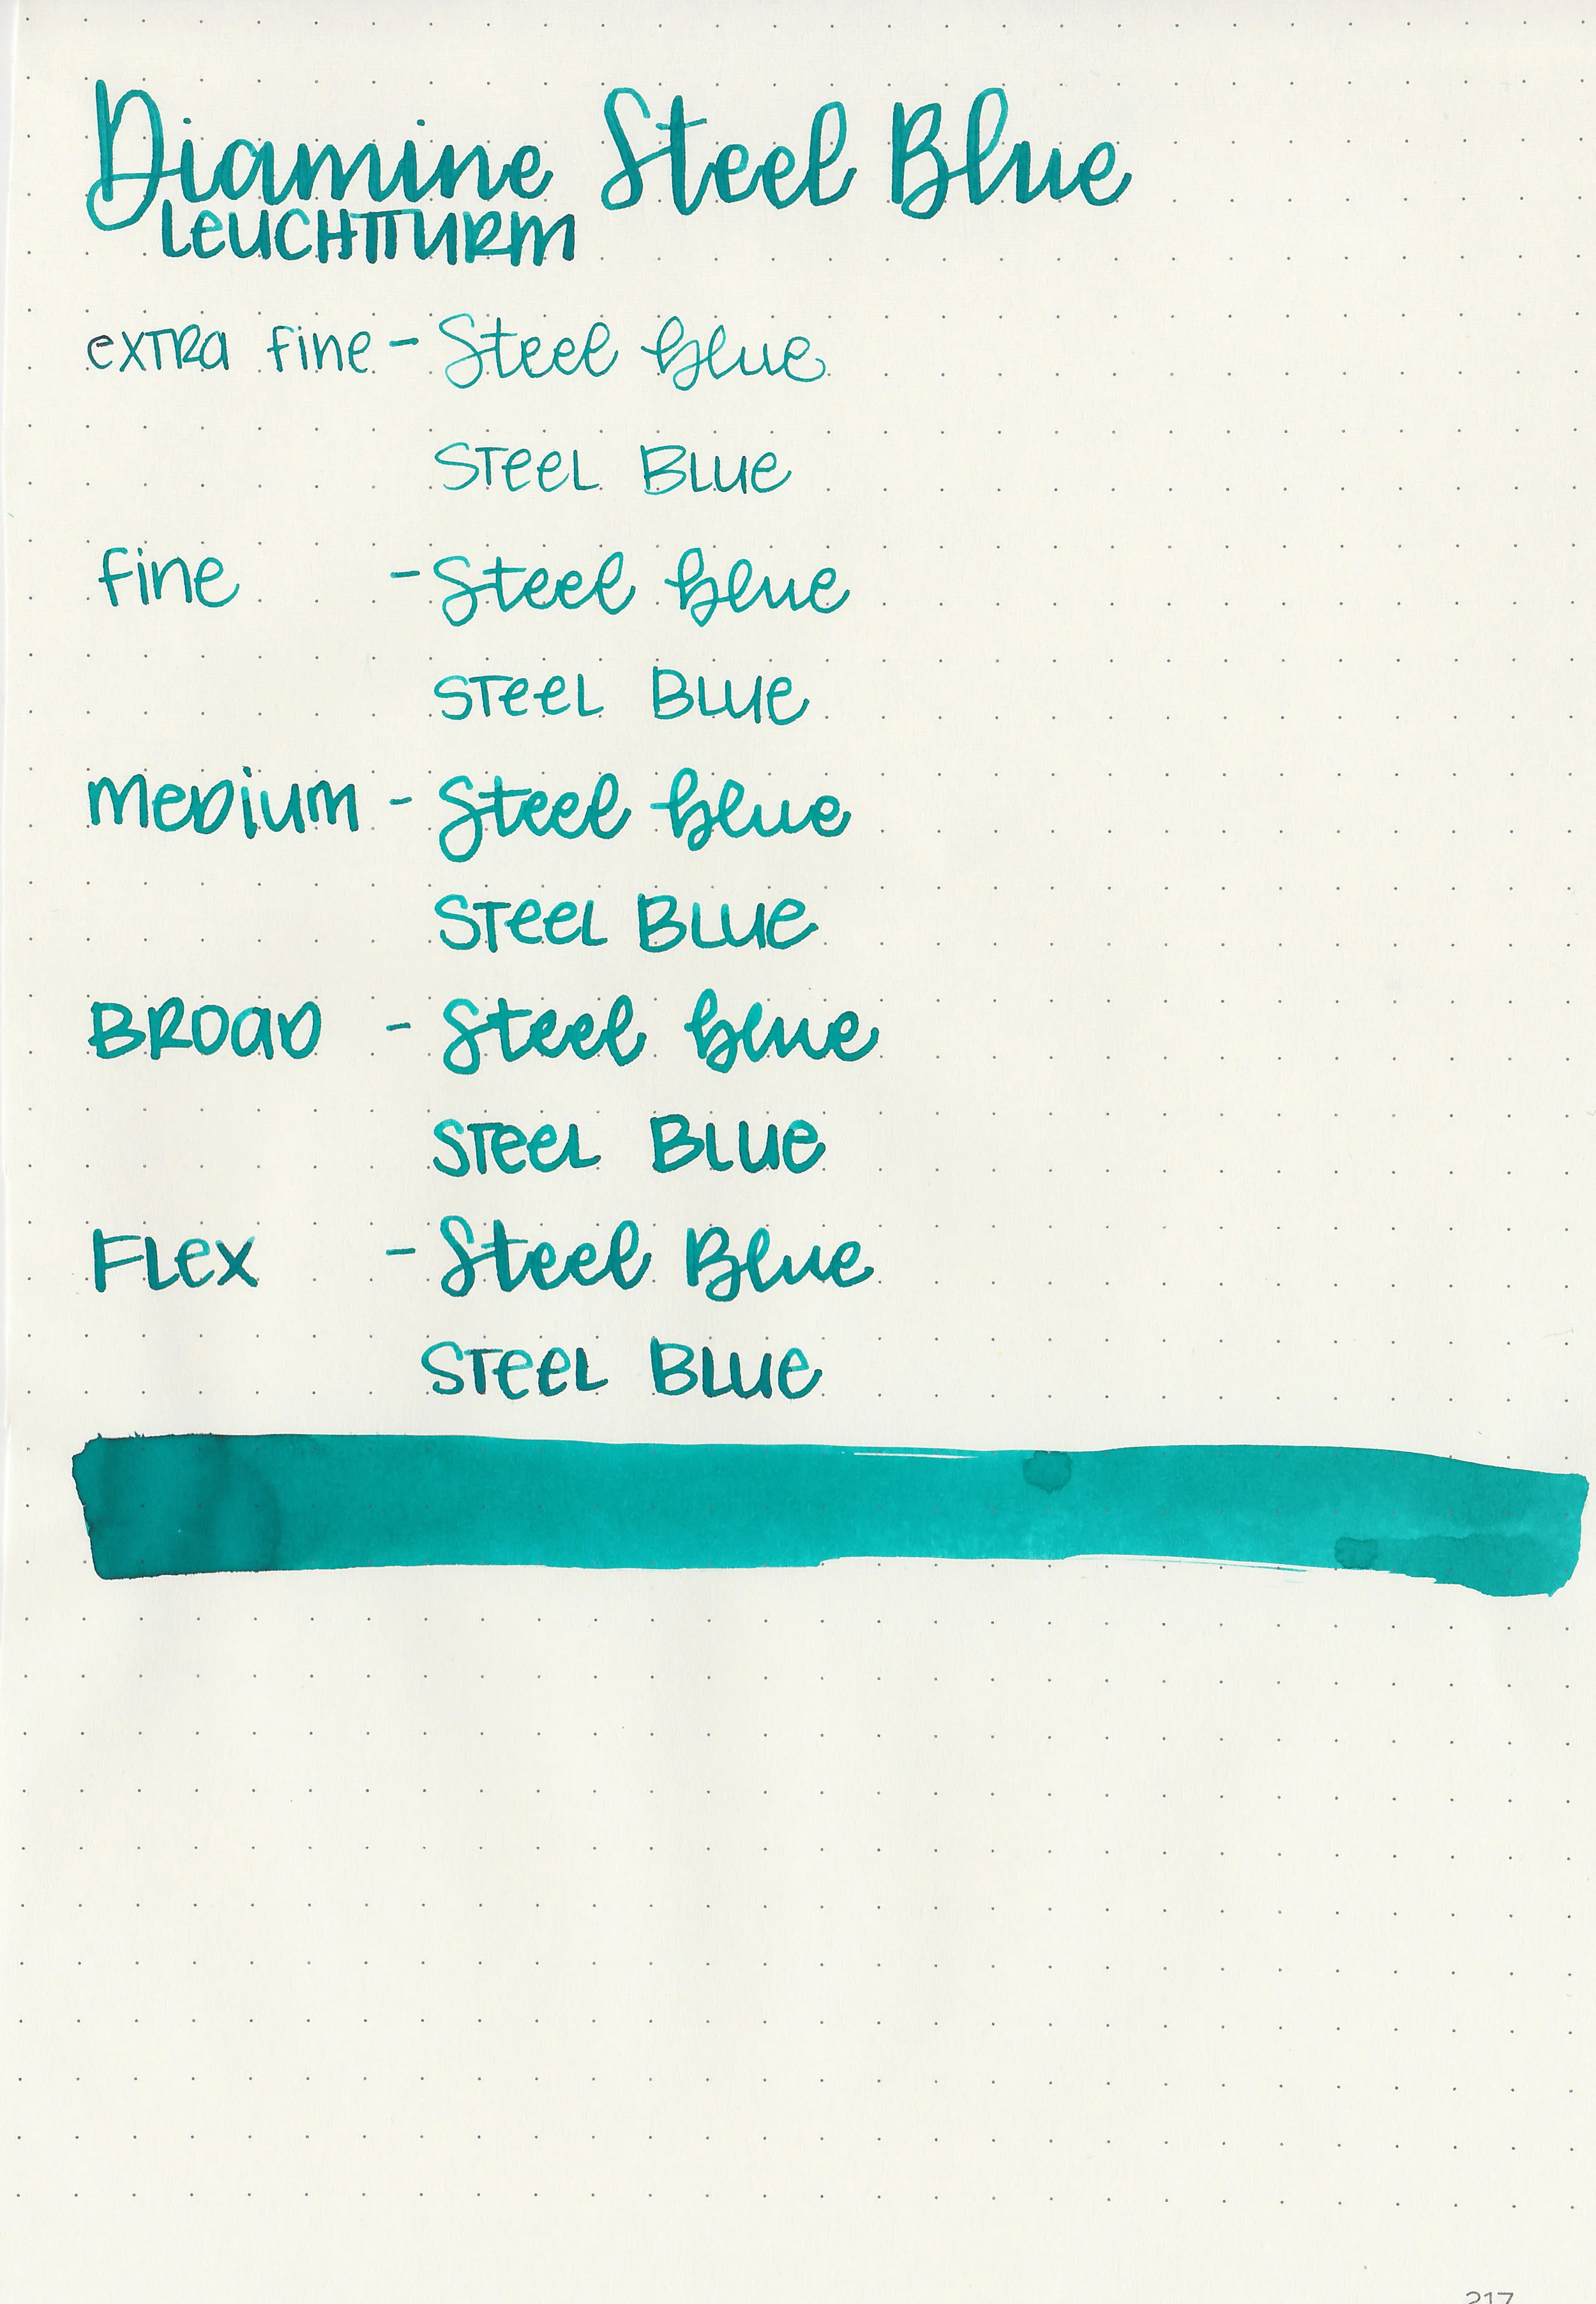 Diamine Steel Blue
LEUCHTTURM
extra fine - Steel blue
STEEL BLUE
fine - Steel blue
STEEL BLUE
Medium - Steel blue
STEEL BLUE
BROAD - Steel blue
STEEL BLUE
FLEX - Steel Blue
STEEL BLUE
217